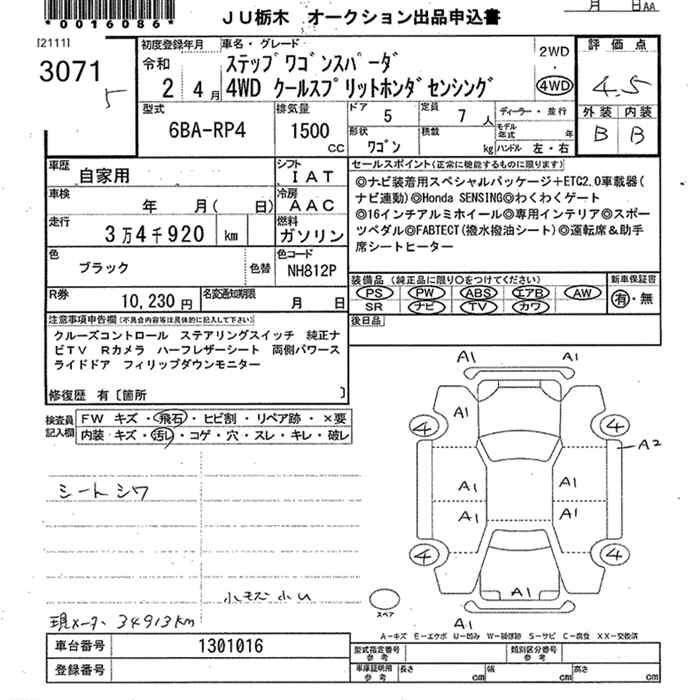 *0016086*
JU栃木 オークション出品申込書
月 日AA
[2111]
3071
5
初度登録年月 車名・グレード
令和
2 4月
ステップワゴンスパーダ
4WD クールスプリットホンダセンシング
2WD
・
4WD
評価点
4.5
外装 内装
B B
型式 6BA-RP4
排気量 1500 CC
ドア 5
定員 7人
ディーラー・並行
形状 ワゴン
積載 kg
モデル年式 年
ハンドル 左・右
車歴 自家用
シフト IAT
車検 年 月( 日)
冷房 AAC
走行 3万4千920 km
燃料 ガソリン
色 ブラック 色替
色コード NH812P
R券 10,230円
名変通知期限 月 日
セールスポイント(正常に機能するものに限ります)
◎ナビ装着用スペシャルパッケージ+ETC2.0車載器(
ナビ連動)◎Honda SENSING◎わくわくゲート
◎16インチアルミホイール◎専用インテリア◎スポー
ツペダル◎FABTECT(撥水撥油シート)◎運転席&助手
席シートヒーター
装備品(純正品に限り○をつけてください)
PS PW ABS エアB AW
SR ナビ TV カワ
新車保証書
有・無
後日品
注意事項申告欄(不具合内容等は具体的に記入して下さい)
クルーズコントロール ステアリングスイッチ 純正ナ
ビTV Rカメラ ハーフレザーシート 両側パワース
ライドドア フィリップダウンモニター
修復歴 有〔箇所 〕
検査員記入欄
FW キズ・飛石・ヒビ割・リペア跡・×要
内装 キズ・汚レ・コゲ・穴・スレ・キレ・破レ
シートシワ
小キズ小U
現メーター 34913km
A1 A1
A1
4 4
A2
A1 A1
A1 A1
4 4
A1
A1
スペア
A-キズ E-エクボ U-凹み W-補修跡 S-サビ C-腐食 XX-交換済
車台番号 1301016
登録番号
型式指定番号 参考
類別区分番号 参考
車庫証明用 参考 長さ cm 幅 cm 高さ cm